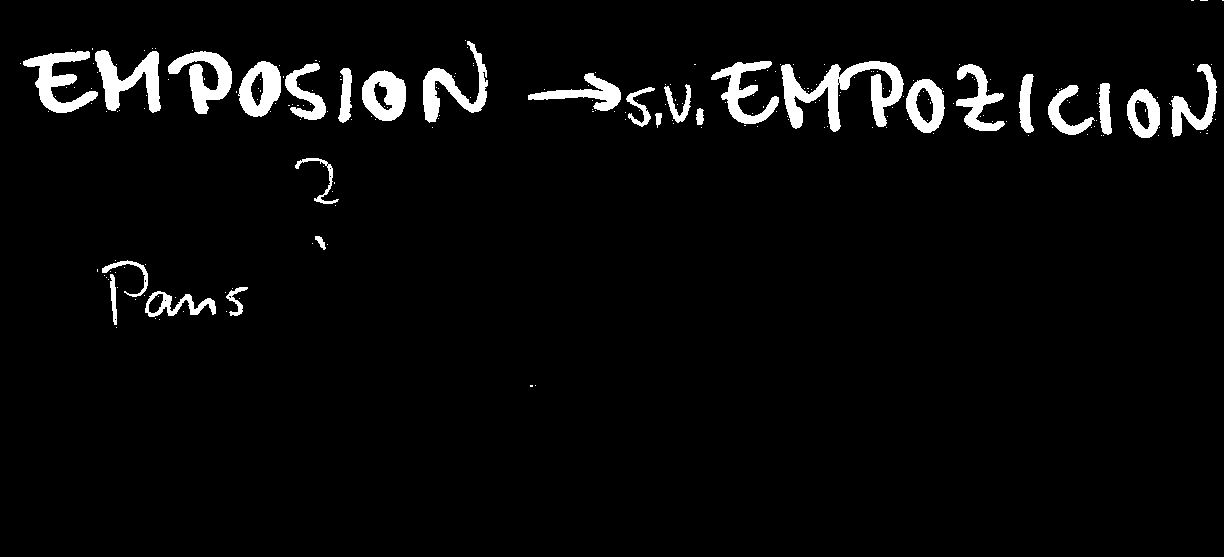 EMPOSION → s.v. EMPOZICION
?
Paris